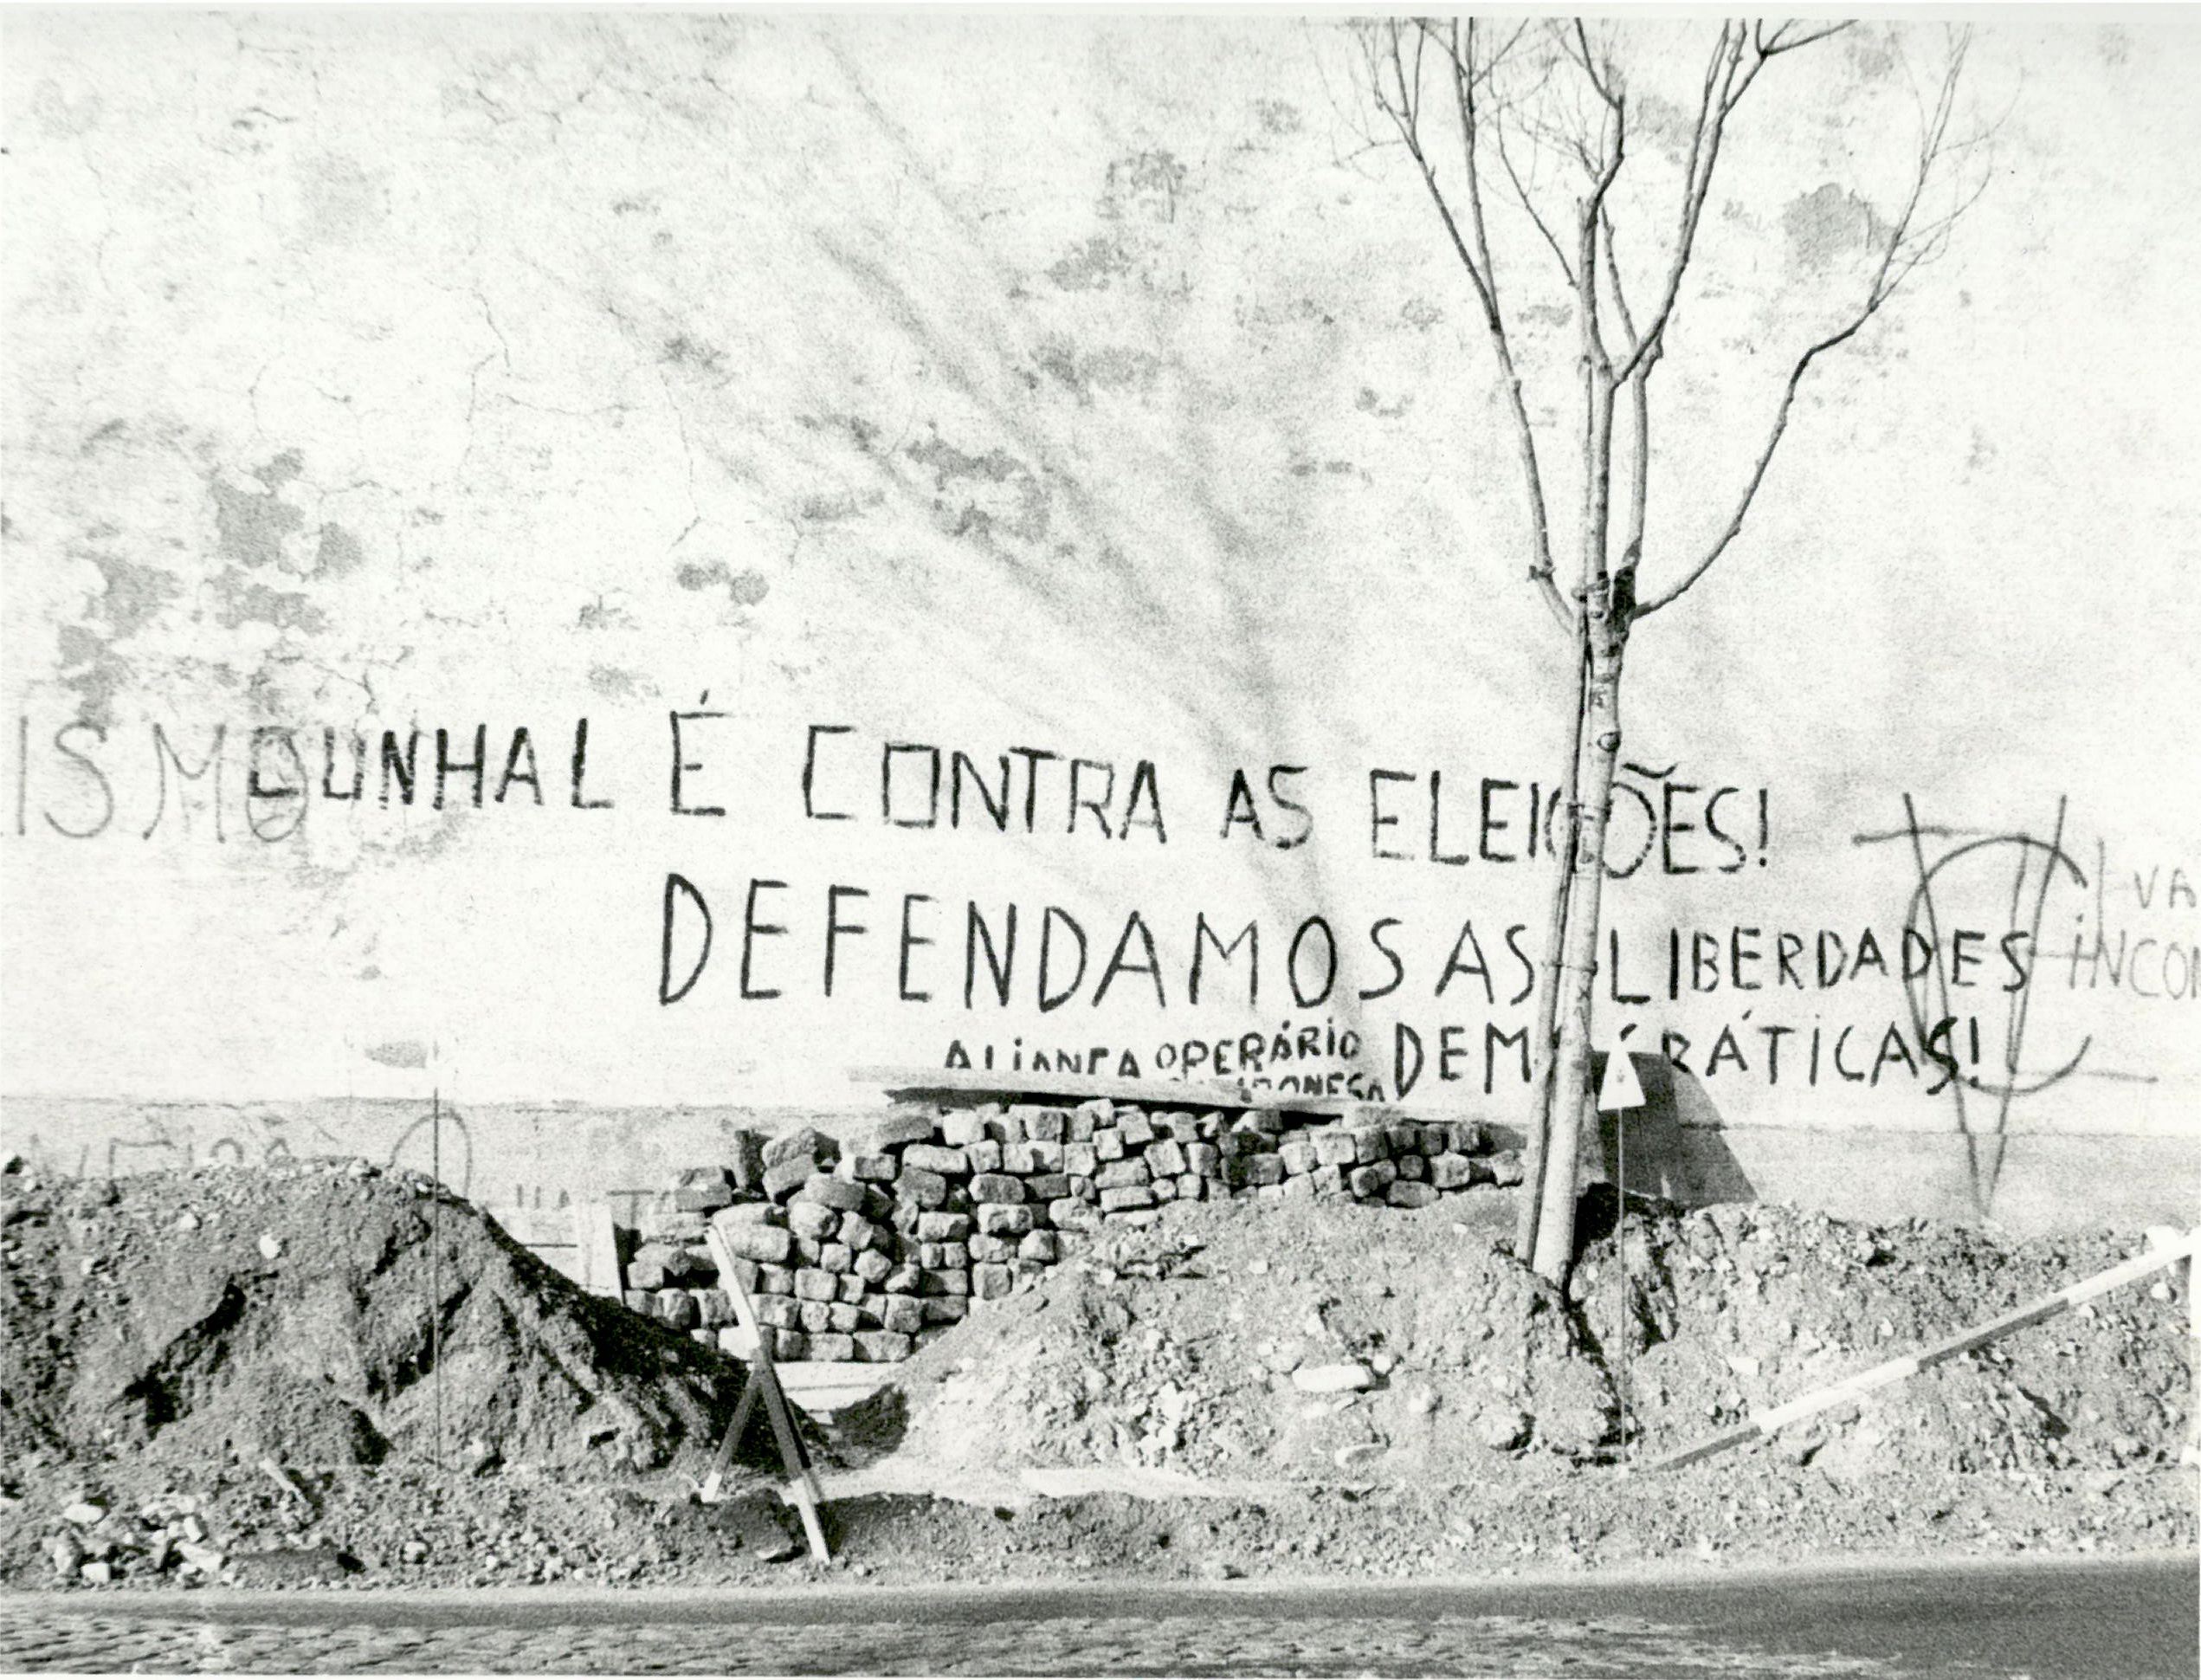 CUNHAL É CONTRA AS ELEIÇÕES!
DEFENDAMOS AS LIBERDADES
DEMOCRÁTICAS!
ALIANÇA OPERÁRIO
CAMPONESA
ISMO
VA
INCON